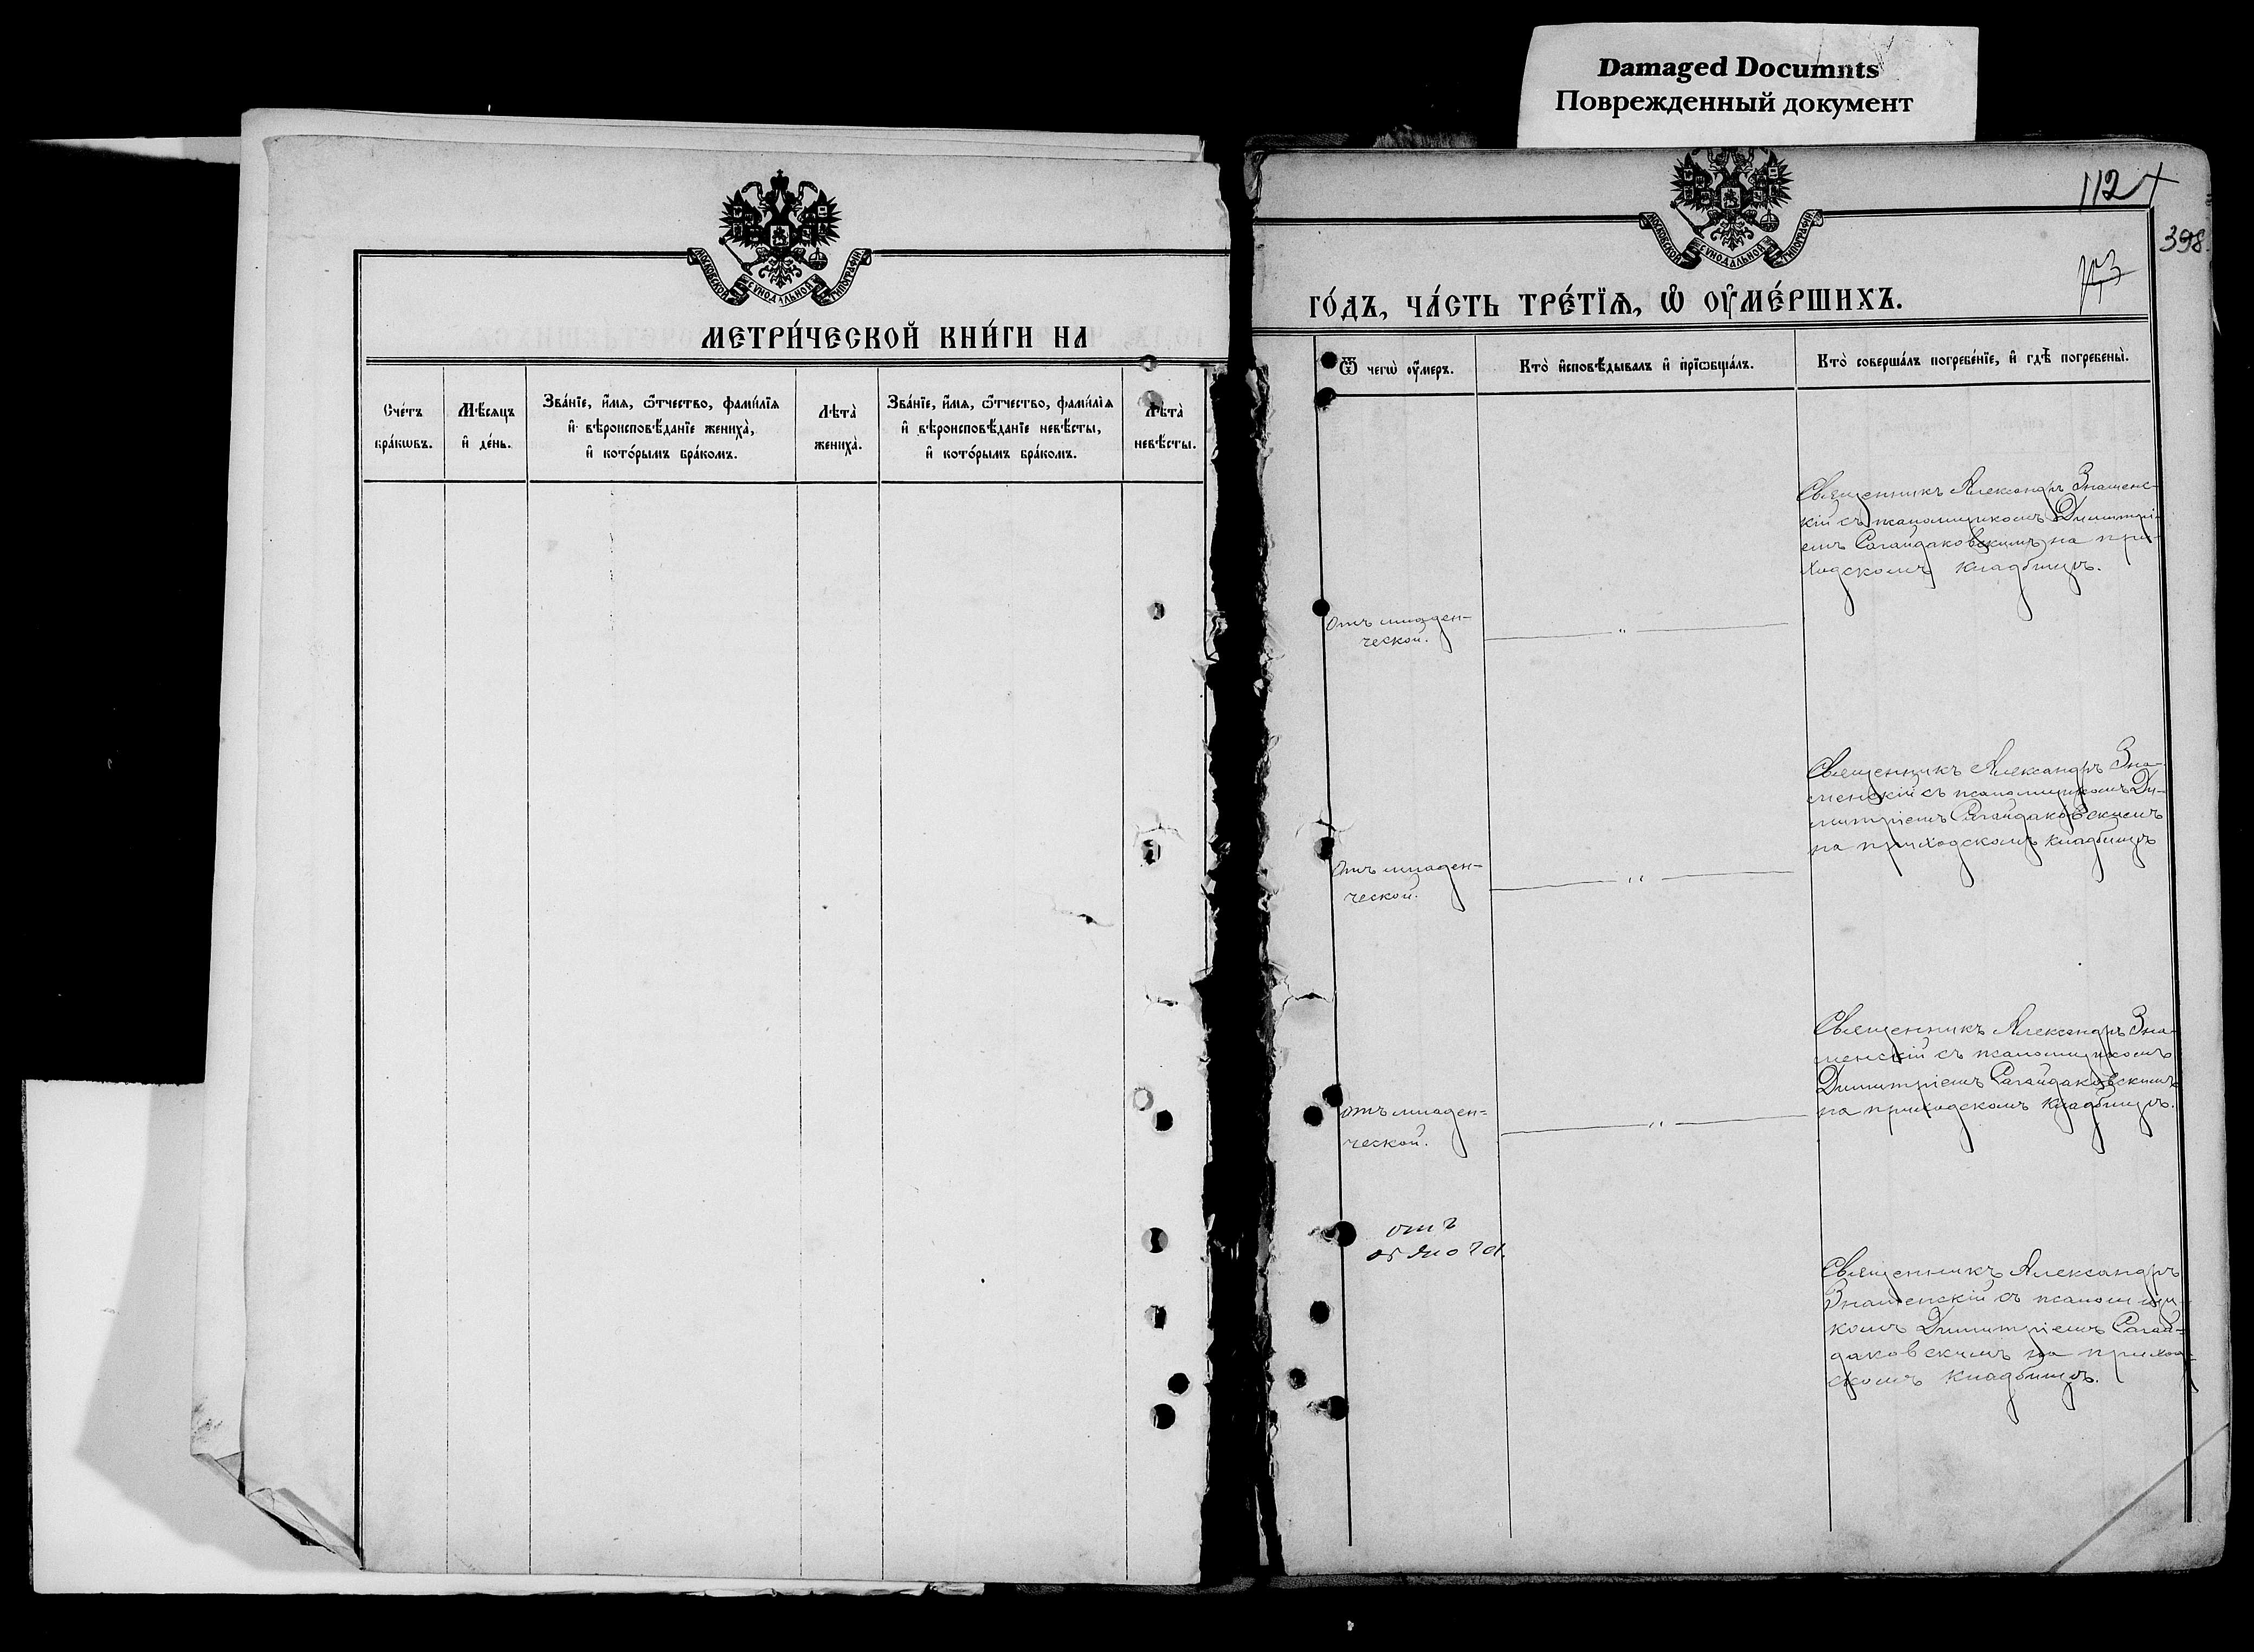 Damaged Documnts
Поврежденный документ
МОСКОВСКОЙ СѴНОДАЛЬНОЙ ТИПОГРАФІИ
МЕТРИ́ЧЕСКОЙ КНИ́ГИ НА
Сче́тъ бра́кѡвъ.
Мѣ́сяцъ и҆ де́нь.
Зва́нїе, и҆́мѧ, ѻ҆́тчество, фами́лїѧ
и҆ вѣроисповѣ́данїе жениха̀,
и҆ кото́рымъ бра́комъ.
Лѣта̀ жениха̀.
Зва́нїе, и҆́мѧ, ѻ҆́тчество, фами́лїѧ
и҆ вѣроисповѣ́данїе невѣ́сты,
и҆ кото́рымъ бра́комъ.
Лѣта̀ невѣ́сты.
МОСКОВСКОЙ СѴНОДАЛЬНОЙ ТИПОГРАФІИ
112
398
113
ГО́ДЪ, ЧА́СТЬ ТРЕ́ТЇѦ, Ѽ ОУ҆МЕ́РШИХЪ.
Ѿ чегѡ̀ оу҆́меръ.
Кто̀ и҆сповѣ́дывалъ и҆ прїѡбща́лъ.
Кто̀ соверша́лъ погребе́нїе, и҆ гдѣ̀ погребены̀.
Священникъ Александръ Знаменс-
кій съ псаломщикомъ Димитрі-
емъ Сагайдаковскимъ на при-
ходскомъ кладбищѣ.
Отъ младен-
ческой.
Священникъ Александръ Зна-
менскій съ псаломщикомъ Ди-
митріемъ Сагайдаковскимъ
на приходскомъ кладбищѣ
Отъ младен-
ческой.
Священникъ Александръ Зна-
менскій съ псаломщикомъ
Димитріемъ Сагайдаковскимъ
на приходскомъ кладбищѣ.
отъ младен-
ческой.
отъ
Священникъ Александръ
Знаменскій съ псаломщи-
комъ Димитріемъ Сагай-
даковскимъ на приход-
скомъ кладбищѣ.